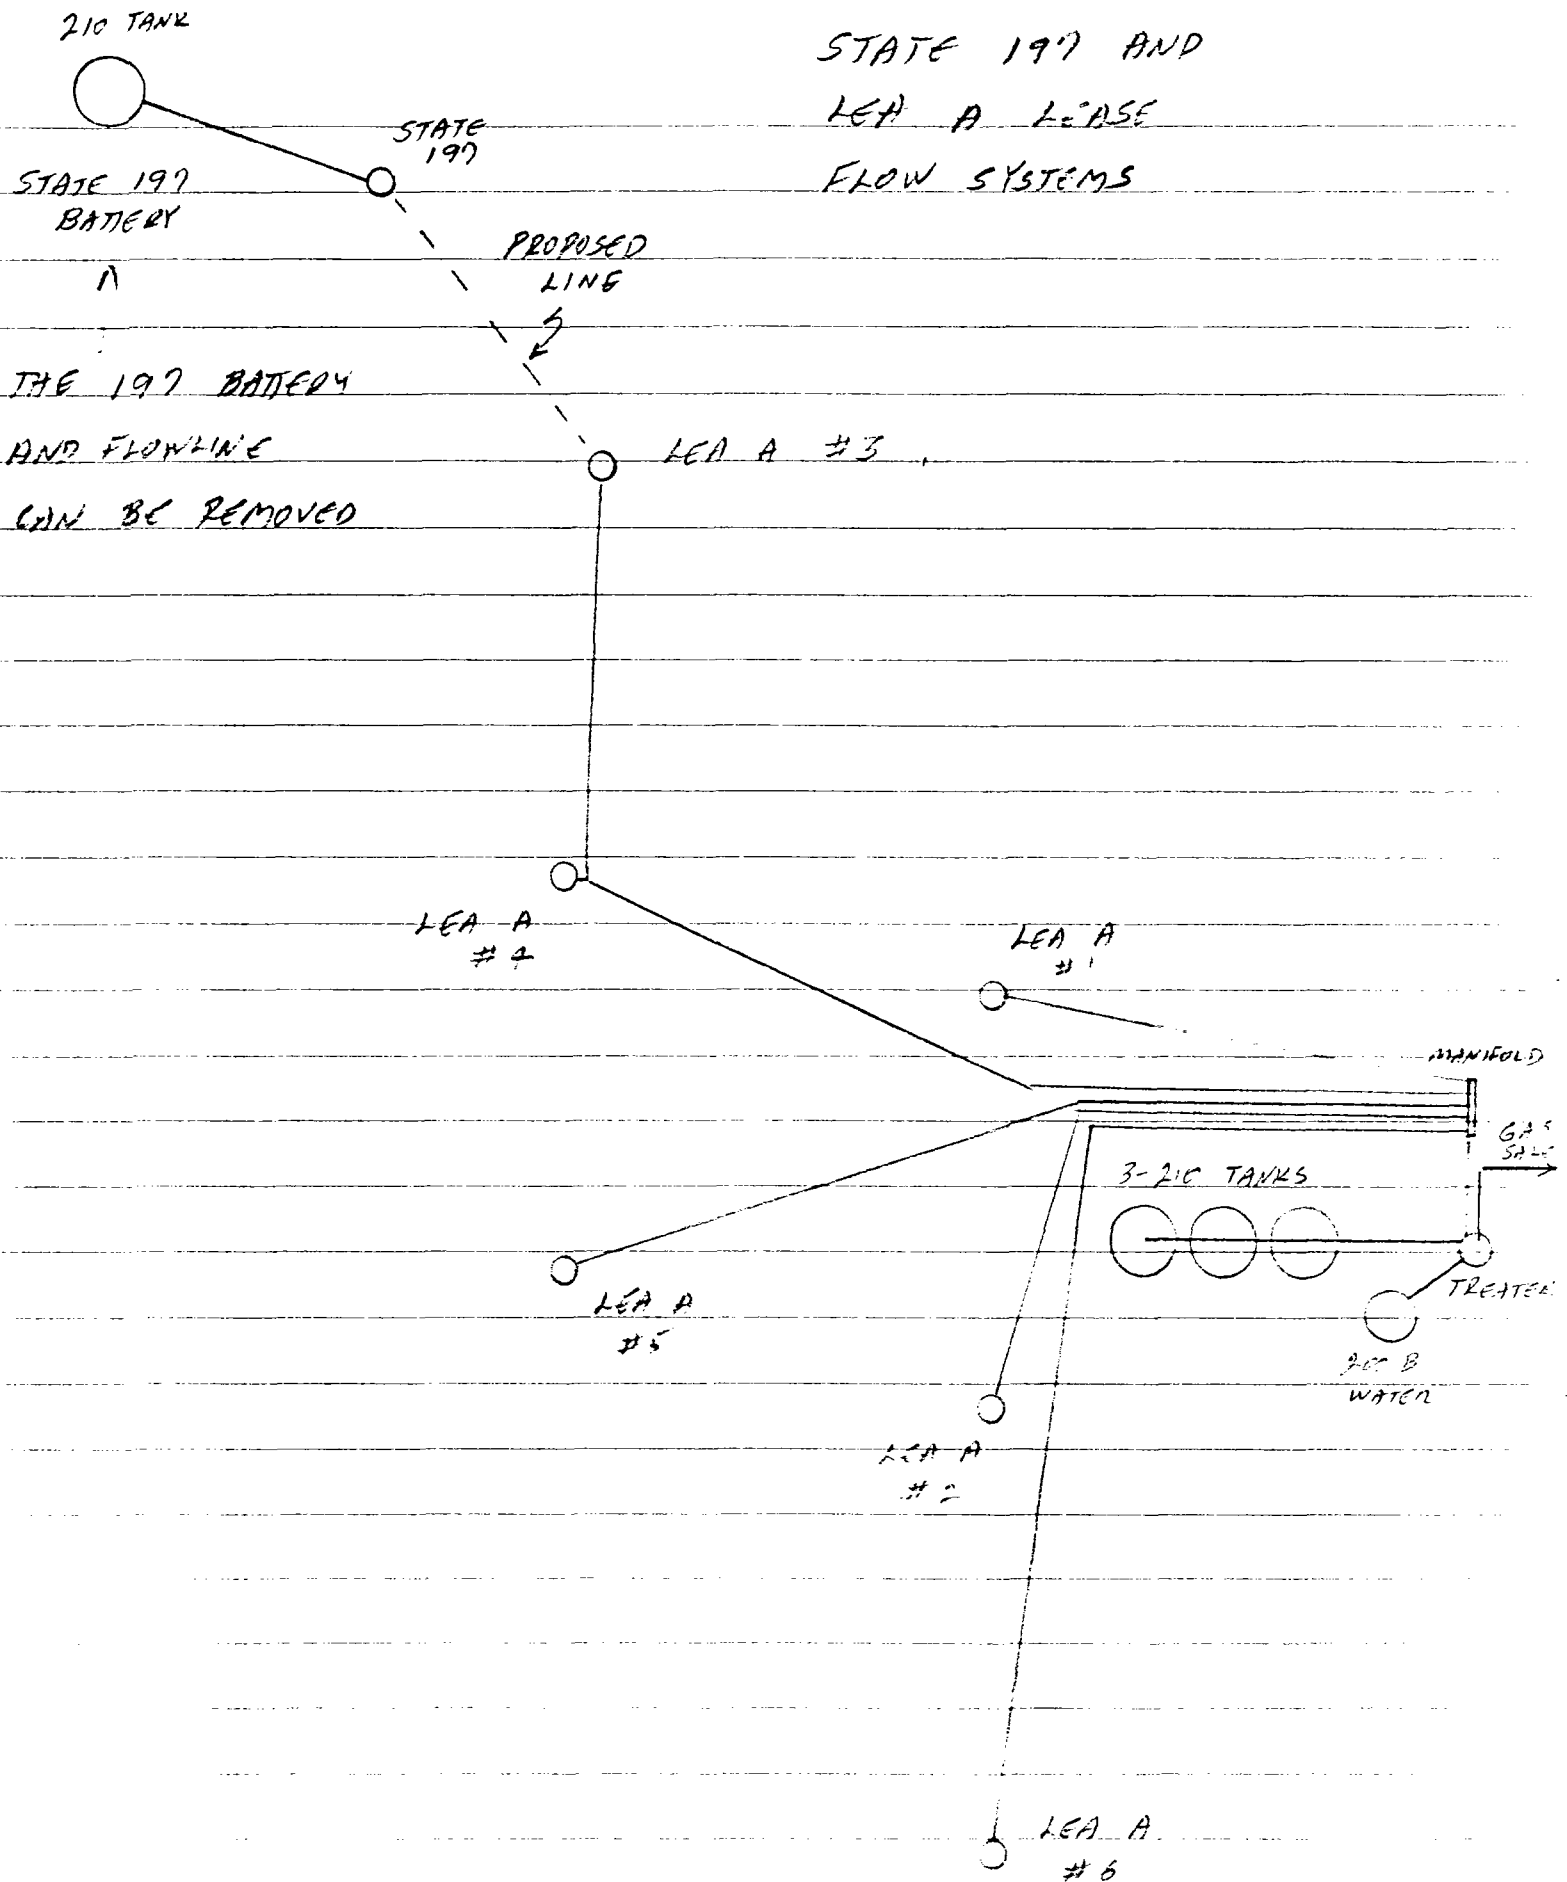 210 TANK
STATE 197 AND
LEA A LEASE
FLOW SYSTEMS
STATE
197
STATE 197
BATTERY
PROPOSED
LINE
THE 197 BATTERY
AND FLOWLINE
CAN BE REMOVED
LEA A #3
LEA A
#4
LEA A
#1
MANIFOLD
GAS
SALE
3-210 TANKS
TREATER
LEA A
#5
200 B
WATER
LEA A
#2
LEA A
#6